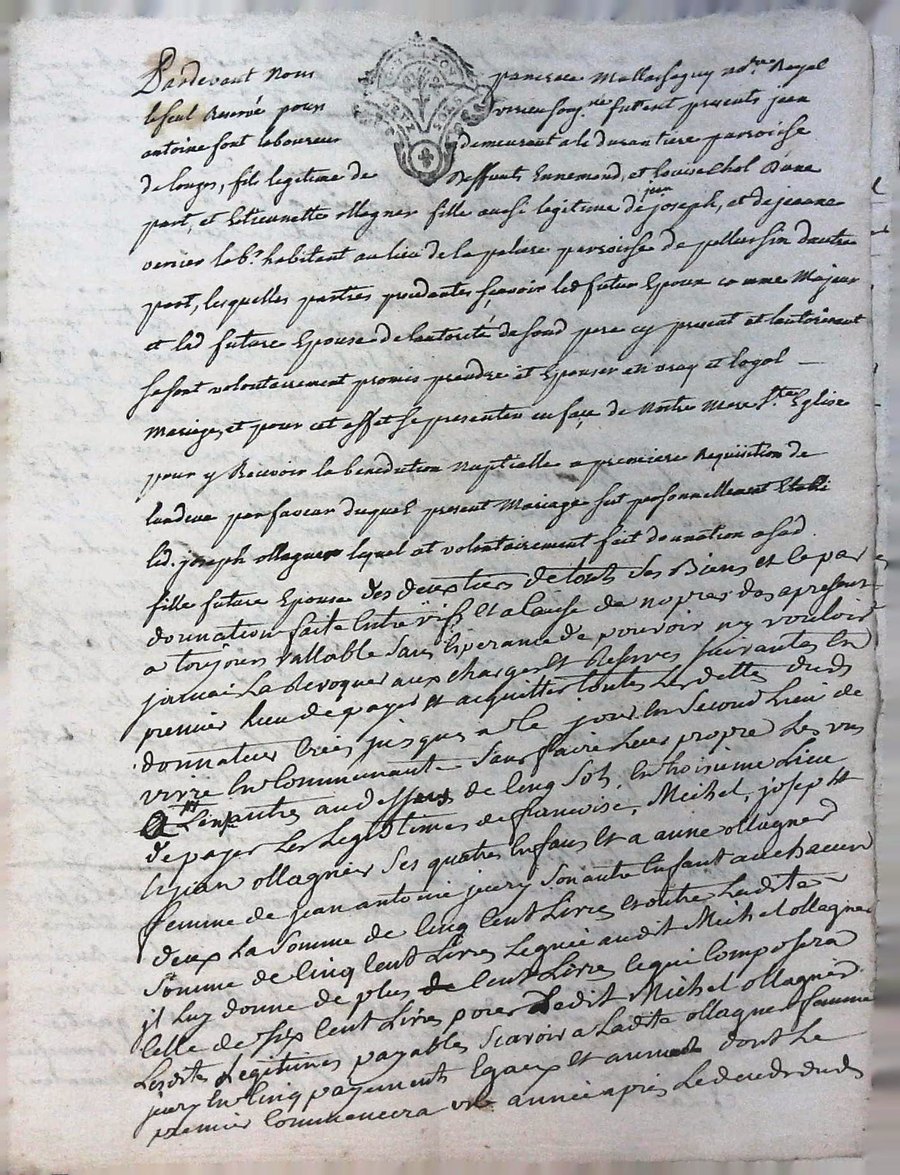 Pardevant Nous pancrace Mallassagny no.re Royal
le seul Reservé pour furent presents jean
antoine font laboureur demeurant a la durantiere parroisse
de longes, fils legitime de Deffunts Ennemond, et Louise chol D'une
part, et Etiennette ollagner fille aussi legitime de jean joseph, et de jeanne
verier lab.r habitant au lieu de la palare parroisse de pellussin dautre
part, lesquelles parties procedantes sçavoir led futur Epoux comme Majeur
et lad future Epouse de lautorité de sond pere cy present et lautorisant
se sont volontairement promis prendre et Epouser en vray et legal
Mariage, et pour cet effet se presenter en façe de Nostre Mere S.te Eglise
pour y Recevoir la benediction Nuptialle a premiere Requisition de
lun deux par faveur duquel present Mariage sut personnellement Etabli
led. joseph ollagner lequel at volontairement fait donnation a sad
fille future Epouse des deux tiers de touts ses Biens et ce par
donnation faite Entre vifs et a Cause de nopces des a present
a toujours vallable sans Esperance de pouvoir ny vouloir
jamais La Revoquer aux charges et Reserves suivantes En
premier lieu de payer et acquitter toutes Les dettes dud
donnateur Crées jusques a Ce jour, En second Lieu de
vivre En Communauté sans faire Leur propre Les uns
Les autres au dessus de Cinq sols, En troisieme Lieu
de payer Les Legitimes de francoise, Michel, joseph
Et jean ollagnier ses quatre Enfans Et a anne ollagner
femme de jean antoine jury son autre Enfant a chacun
deux La somme de Cinq Cent Livres Et outre Ladite
somme de Cinq Cent Livres Leguée audit Michel ollagner
il Luy donne de plus Cent Livres Ce qui Composera
Celle de six Cent Livres pour Ledit Michel ollagner
Lesdites Legitimes payables Scavoir a Ladite ollagner femme
jury En Cinq payements Egaux Et annuels dont Le
premier Commencera une année après Le deceds dud